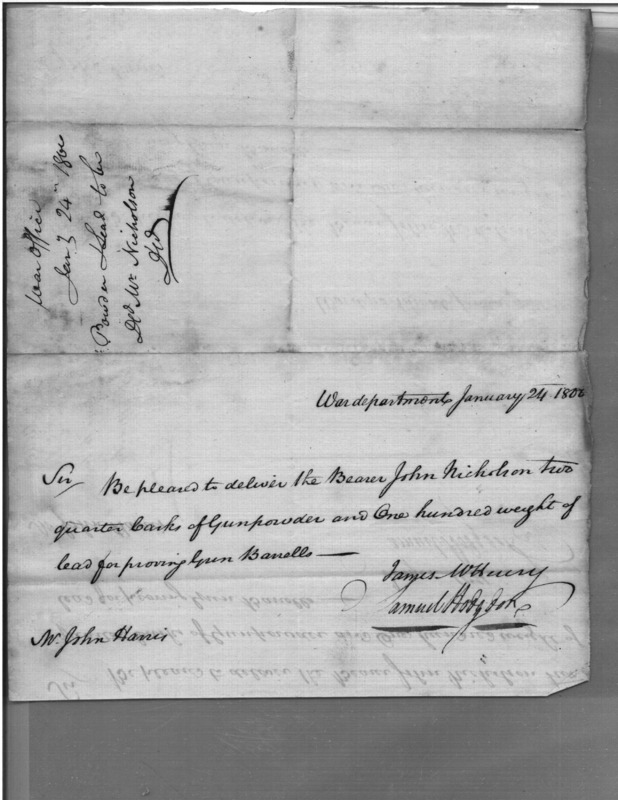 War Office
Jany 24th 1800
Powder & Lead to be
Dd Mr. Nicholson
War department January 24 1800
Sir Be pleased to deliver the Bearer John Nicholson two
quarter Casks of Gunpowder and One hundred weight of
lead for proving Gun Barrells —
James McHenry
Samuel Hodgdon
Mr. John Harris